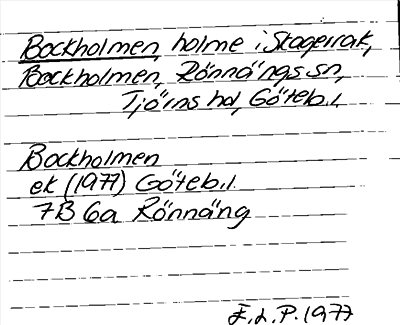 Bockholmen, holme i Skagerrak,
Bockholmen, Rönnängs sn,
Tjörns hd, Göteb.l.
Bockholmen
ek (1977) Göteb.l.
7B 6a Rönnäng
E.L.P. 1977